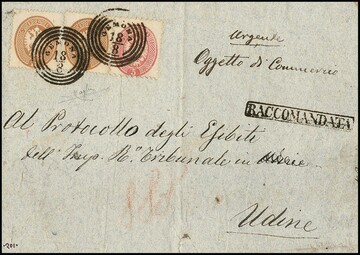 GEMONA
18/8
GEMONA
18/8
Urgente
Oggetto di Commercio
RACCOMANDATA
Al Protocollo degli Esibiti
dell' Imp. R. Tribunale in
Udine